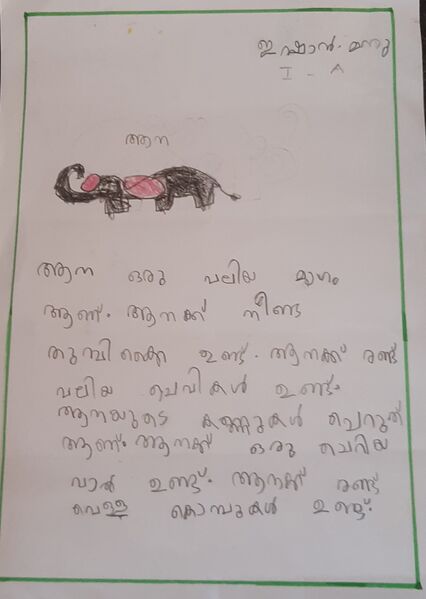 ഇഷാൻ. മനു
I - A
ആന
ആന ഒരു വലിയ മൃഗം
ആണ്. ആനക്ക് നീണ്ട
തുമ്പികൈ ഉണ്ട്. ആനക്ക് രണ്ട്
വലിയ ചെവികൾ ഉണ്ട്.
ആനയുടെ കണ്ണുകൾ ചെറുത്
ആണ്. ആനക്ക് ഒരു ചെറിയ
വാൽ ഉണ്ട്. ആനക്ക് രണ്ട്
വെള്ള കൊമ്പുകൾ ഉണ്ട്.